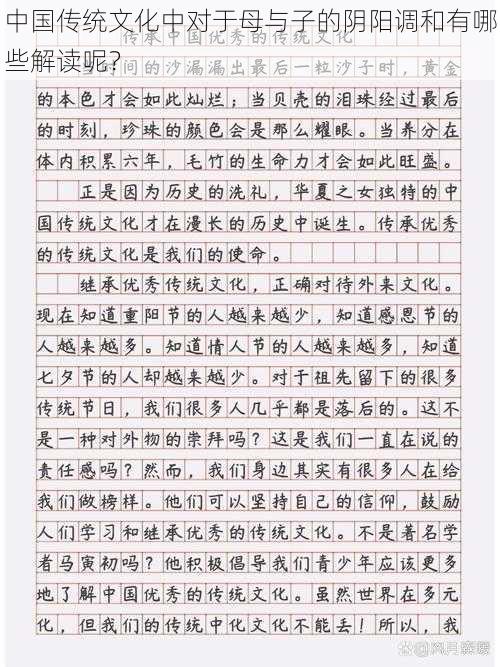 中国传统文化中对于母与子的阴阳调和有哪
些解读呢？
传承中国优秀的传统文化
当时间的沙漏漏出最后一粒沙子时，黄金
的本色才会如此灿烂；当贝壳的泪珠经过最后
的时刻，珍珠的颜色会是那么耀眼。当养分在
体内积累六年，毛竹的生命力才会如此旺盛。
正是因为历史的洗礼，华夏之女独特的中
国传统文化才在漫长的历史中诞生。传承优秀
的传统文化是我们的使命。
继承优秀传统文化，正确对待外来文化。
现在知道重阳节的人越来越少，知道感恩节的
人越来越多。知道情人节的人越来越多，知道
七夕节的人却越来越少。对于祖先留下的很多
传统节日，我们很多人几乎都是落后的。这不
是一种对外物的崇拜吗？这是我们一直在说的
责任感吗？然而，我们身边其实有很多人在给
我们做榜样。他们可以坚持自己的信仰，鼓励
人们学习和继承优秀的传统文化。不是著名学
者马寅初吗？他积极倡导我们青少年应该更多
地了解中国优秀的传统文化。虽然世界在多元
化，但我们的传统中化文化不能丢！所以，我